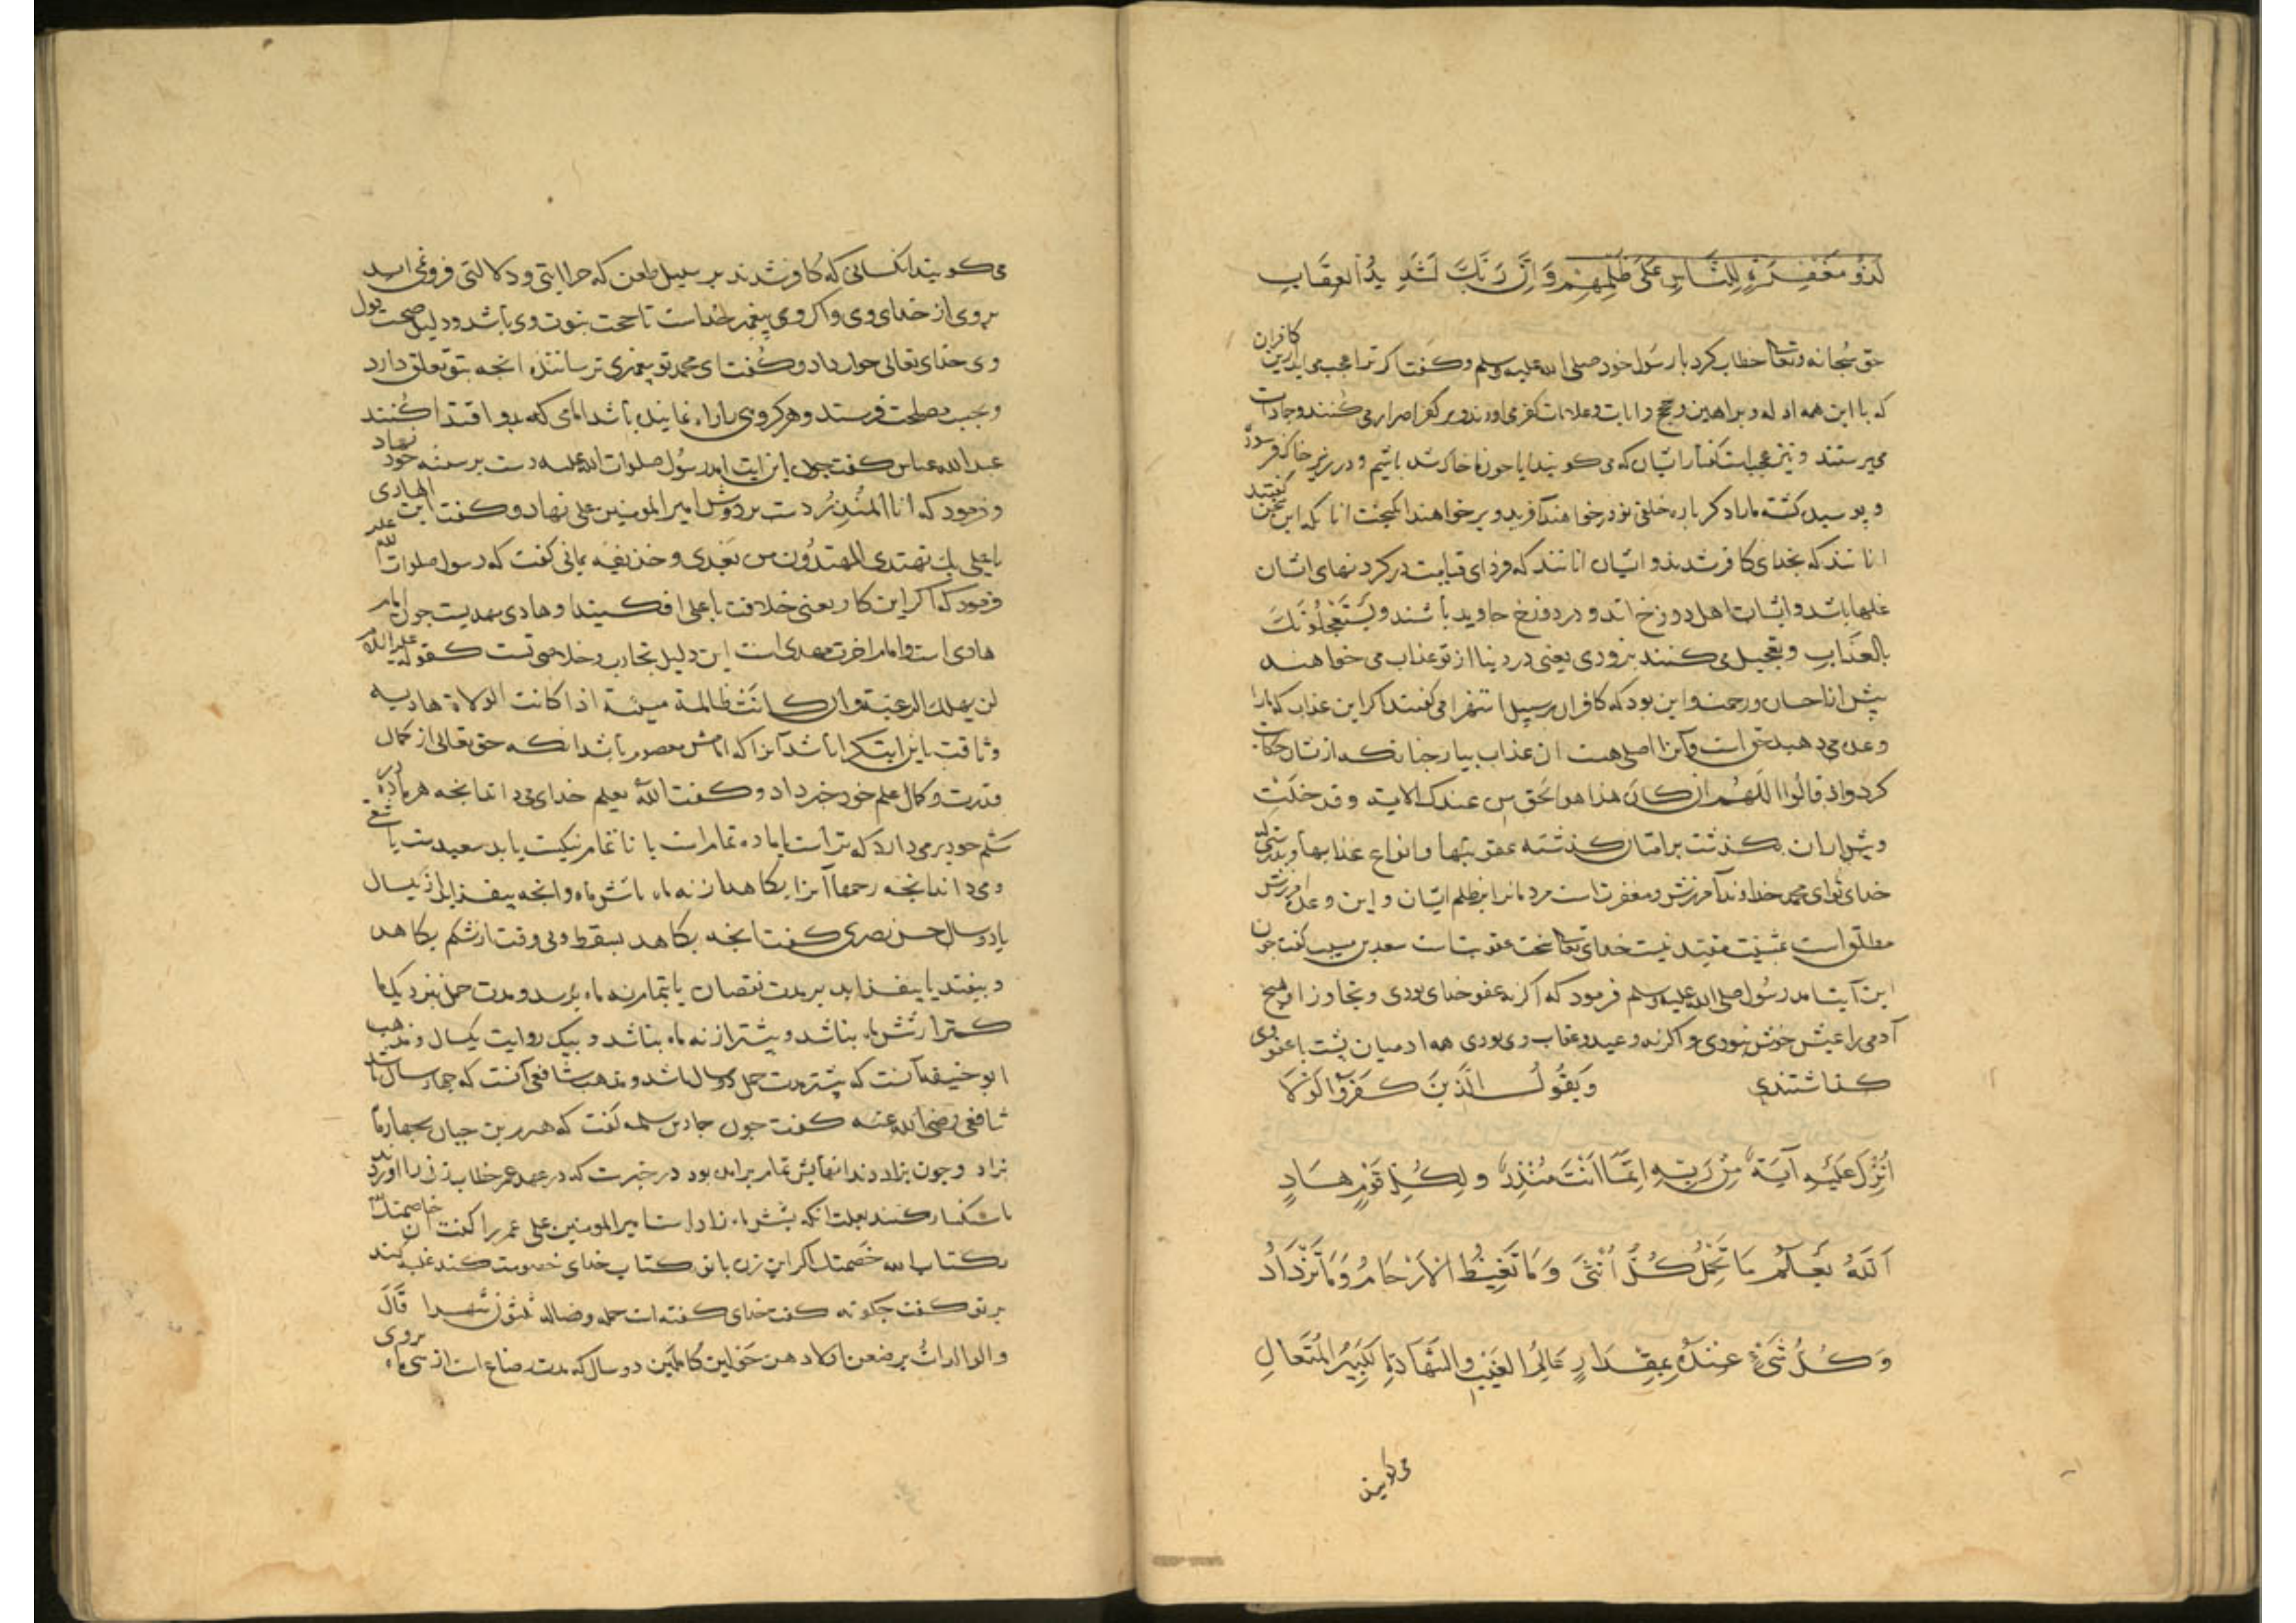 لَذُو مَغْفِرَةٍ لِلنَّاسِ عَلَى ظُلْمِهِمْ وَاِنَّ رَبَّكَ لَشَدِيدُ الْعِقَابِ
حق سبحانه وتعالی خطاب کرد با رسول خود صلی الله علیه وسلم وکفت اکر ترا عجب می اید ازین کافران
که با این همه ادله و براهین و حجج و ایات و علامات کفر می اورند و بر کفر اصرار می کنند و جمادات
می پرستند و نیز عجب است گفتار ایشان که می کویند ایا چون ما خاک شده باشیم و در زیر خاک فرسوده
و پوسیده کشته ما را دکر باره خلقی نو در خواهند آفرید و بر خواهند انکیخت انانکه این سخن کفتند
انانند که بخدای کافر شدند و ایشان انانند که فردای قیامت در کردنهای ایشان
غلها باشد و ایشان اهل دوزخ اند و در دوزخ جاوید باشند وَيَسْتَعْجِلُونَكَ
بِالْعَذَابِ و تعجیل می کنند بزودی یعنی در دنیا از تو عذاب می خواهند
پیش از احسان و رحمت و این بود که کافران بر سبیل استهزا می کفتند اکر این عذاب که ما را
وعده می دهید حق است و آنرا اصلی هست ان عذاب بیار چنانکه از ایشان حکایت
کرد واذ قالوا اللهم ان کان هذا هو الحق من عندک الایه و قد خلت
و پیش از ایشان بکذشت بر امتان کذشته عقوبتها و انواع عذابها و بدرستی که
خدای تو ای محمد خداوند آمرزش و مغفرت است مردمانرا بر ظلم ایشان و این وعده آمرزش
مطلق است بمشیت مقید نیست خدای تعالی سخت عقوبت است سعید بن مسیب کفت چون
این آیت امد رسول صلی الله علیه وسلم فرمود که اکر نه عفو خدای بودی و تجاوز او هیچ
آدمی را عیش خوش نبودی و اکر نه وعید و عقاب وی بودی همه ادمیان پشت با عفو وی
کذاشتندی وَيَقُولُ الَّذِينَ كَفَرُوا لَوْلَا
اُنْزِلَ عَلَيْهِ آيَةٌ مِنْ رَبِّهِ اِنَّمَا اَنْتَ مُنْذِرٌ وَلِكُلِّ قَوْمٍ هَادٍ
اَللّٰهُ يَعْلَمُ مَا تَحْمِلُ كُلُّ اُنْثَى وَمَا تَغِيضُ الْاَرْحَامُ وَمَا تَزْدَادُ
وَكُلُّ شَيْءٍ عِنْدَهُ بِمِقْدَارٍ عَالِمُ الْغَيْبِ وَالشَّهَادَةِ الْكَبِيرُ الْمُتَعَالِ
می کویند
می کویند انکسانی که کافر شدند بر سبیل طعن که چرا ایتی و دلالتی فرو نمی اید
بر وی از خدای وی و اکر وی پیغمبر خداست تا حجت نبوت وی باشد و دلیل صحت قول
وی خدای تعالی جواب داد و کفت ای محمد تو پیغمبری ترساننده انچه بتو تعلق دارد
عبد الله عباس کفت چون این ایت امد رسول صلوات الله علیه دست بر سینه خود نهاد
و فرمود که انا المُنذِر و دست بر دوش امیر المومنین علی نهاد و کفت انت الهادی
یا علی بک یهتدی المهتدون من بعدی و حذیفه یمانی کفت که رسول صلوات الله علیه
فرمود که اکر این کار یعنی خلافت با علی افکنید او هادی مهدیست چون امام
هادی است و امام اخرت مهدی است این دلیل نجات و خلاصی تست کقوله علیه السلام
لن یهلک الرعیة وان کانت ظالمة مسیئة اذا کانت الولاة هادیه
قدرت و کمال علم خود خبر داد و کفت الله یعلم خدای می داند انچه هر ماده در
شکم خود بر می دارد که نر است یا ماده تمام است یا ناتمام نیک است یا بد سعید ست یا شقی
و می داند انچه رحمها آنرا بکاهد از نه ماه تا شش ماه و انچه بیفزاید از یکسال
یا دو سال حسن بصری کفت انچه بکاهد بسقط و بی وقت از شکم بکاهد
و بیفتد یا بیفزاید بر مدت نقصان یا بتمام نه ماه برسد و مدت حمل نزدیک ما
کمتر از شش ماه نباشد و بیشتر از نه ماه نباشد و بیک روایت یکسال و مذهب
ابو حنیفه آنست که بیشتر مدت حمل دو سال باشد و مذهب شافعی آنست که چهار سال باشد
شافعی رضی الله عنه کفت چون حماد بن سلمه کفت که هرم بن حیان بچهار ماه
بزاد و چون بزاد دندانهایش تمام برامده بود در خبر ست که در عهد عمر خطاب زنی را اوردند
تا سنکسار کنند بعلت انکه بشش ماه زاده است امیر المومنین علی عمر را کفت ان خاصمتک
بکتاب الله خصمتک اکر این زن با تو بکتاب خدای خصومت کند غلبه کند
بر تو کفت چکونه کفت خدای کفته است حمله وفصاله ثلثون شهرا قال
والوالدات یرضعن اولادهن حولین کاملین دو سال که مدت رضاع است از سی ماه بروی